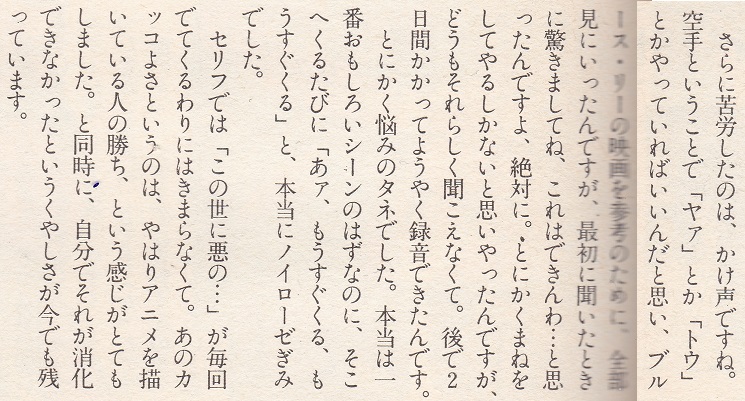 さらに苦労したのは、かけ声ですね。
空手ということで「ヤァ」とか「トウ」
とかやっていればいいんだと思い、ブル
ース・リーの映画を参考のために、全部
見にいったんですが、最初に聞いたとき
に驚きましてね、これはできんわ…と思
ったんですよ、絶対に。とにかくまねを
してやるしかないと思いやったんですが、
どうもそれらしく聞こえなくて。後で2
日間かかってようやく録音できたんです。
とにかく悩みのタネでした。本当は一
番おもしろいシーンのはずなのに、そこ
へくるたびに「あァ、もうすぐくる、も
うすぐくる」と、本当にノイローゼぎみ
でした。
セリフでは「この世に悪の…」が毎回
でてくるわりにはきまらなくて。あのカ
ッコよさというのは、やはりアニメを描
いている人の勝ち、という感じがとても
しました。と同時に、自分でそれが消化
できなかったというくやしさが今でも残
っています。